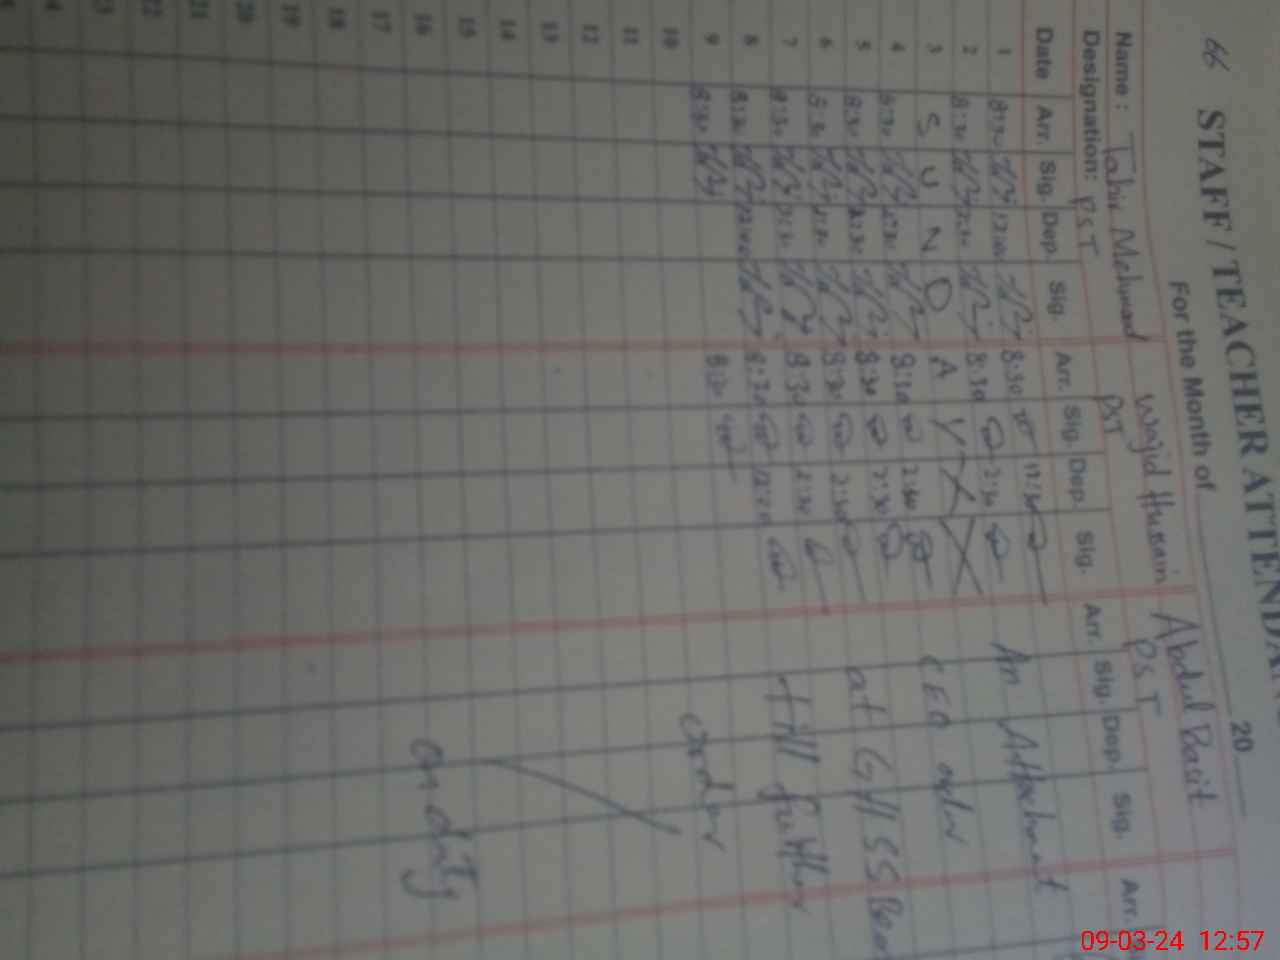 66 STAFF / TEACHER ATTENDA
For the Month of 20
Name : Tahir Mehmood Wajid Hussain Abdul Basit
Designation: PST PST PST
Date Arr. Sig. Dep. Sig. Arr. Sig. Dep. Sig. Arr. Sig. Dep. Sig. Arr.
1 8:30 12:00 8:30
2 8:30 2:30 8:30 2:30
3 S U N D A Y
4 8:30 2:30 8:30 2:30
5 8:30 2:30 8:30 2:30
6 8:30 2:30 8:30 2:30
7 8:30 2:30 8:30 2:30
8 8:30 12:00 8:30 12:00
9 8:30 8:30
10
11
12
13
14
15
16
17
18
19
20
21
22
23
An Attachment
CEO
at GHSS
till further
order
on duty
09-03-24 12:57